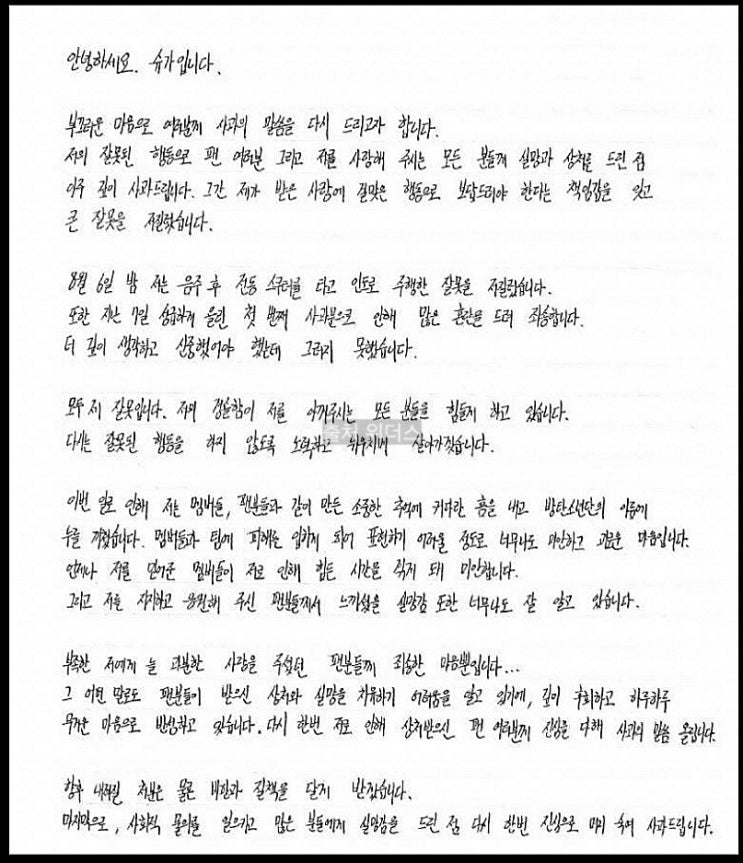 안녕하세요. 슈가입니다.
부끄러운 마음으로 여러분께 사과의 말씀을 다시 드리고자 합니다.
저의 잘못된 행동으로 팬 여러분 그리고 저를 사랑해 주시는 모든 분들께 실망과 상처를 드린 점
아주 깊이 사과드립니다. 그간 제가 받은 사랑에 걸맞은 행동으로 보답드려야 한다는 책임감을 잊고
큰 잘못을 저질렀습니다.
8월 6일 밤 저는 음주 후 전동 스쿠터를 타고 인도로 주행한 잘못을 저질렀습니다.
또한 지난 7일 성급하게 올린 첫 번째 사과문으로 인해 많은 혼란을 드려 죄송합니다.
더 깊이 생각하고 신중했어야 했는데 그러지 못했습니다.
모두 제 잘못입니다. 저의 경솔함이 저를 아껴주시는 모든 분들을 힘들게 하고 있습니다.
다시는 잘못된 행동을 하지 않도록 노력하고 뉘우치며 살아가겠습니다.
출처 위더스
이번 일로 인해 저는 멤버들, 팬분들과 같이 만든 소중한 추억에 커다란 흠을 내고 방탄소년단의 이름에
누를 끼쳤습니다. 멤버들과 팀에 피해를 입히게 되어 표현하기 어려울 정도로 너무나도 미안하고 괴로운 마음입니다.
언제나 저를 믿어준 멤버들이 저로 인해 힘든 시간을 겪게 돼 미안합니다.
그리고 저를 지지하고 응원해 주신 팬분들께서 느끼셨을 실망감 또한 너무나도 잘 알고 있습니다.
부족한 저에게 늘 과분한 사랑을 주셨던 팬분들께 죄송한 마음뿐입니다...
그 어떤 말로도 팬분들이 받으신 상처와 실망을 치유하기 어려움을 알고 있기에, 깊이 후회하고 하루하루
무거운 마음으로 반성하고 있습니다. 다시 한번 저로 인해 상처받으신 팬 여러분께 진심을 다해 사과의 말씀 올립니다.
향후 내려질 처분은 물론 비난과 질책을 달게 받겠습니다.
마지막으로, 사회적 물의를 일으키고 많은 분들에게 실망감을 드린 점 다시 한번 진심으로 머리 숙여 사과드립니다.